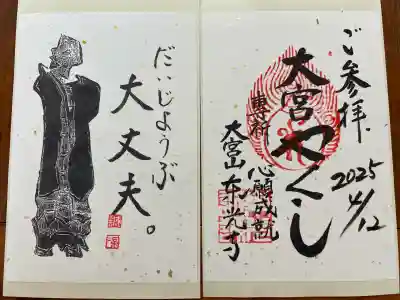 だいじょうぶ
大丈夫。
ご参拝
2025
4/12
大宮やくし
専祈 心願成就
大宮山 东光寺